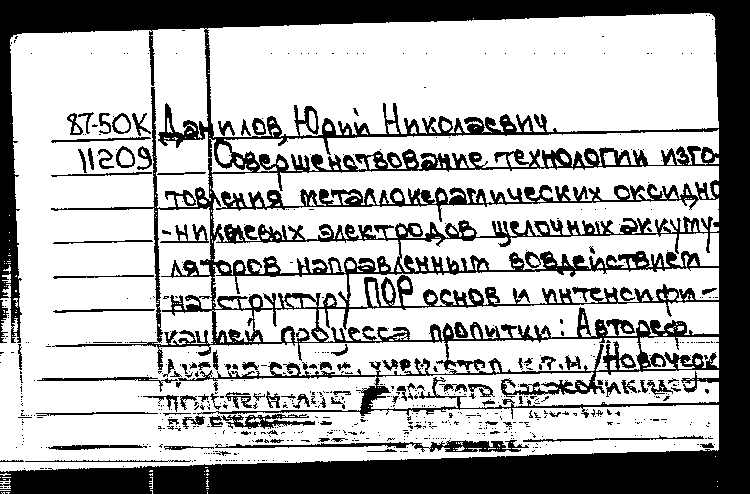 87-50К Данилов, Юрий Николаевич.
11209 Совершенствование технологии изго-
товления металлокерамических оксидно
-никелевых электродов щелочных аккуму-
ляторов направленным воздействием
на структуру ПОР основ и интенсифи-
кацией процесса пропитки: Автореф.
дис. на соиск. учен. степ. к.т.н. / Новочерк
политехн. ин-т им. Серго Орджоникидзе.